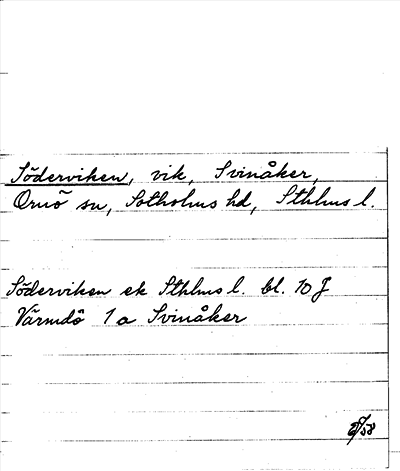 Söderviken, vik, Svinåker,
Ornö sn, Sotholms hd, Sthlms l.
Söderviken ek Sthlms l. bl. 10 J
Värmdö 1 a Svinåker